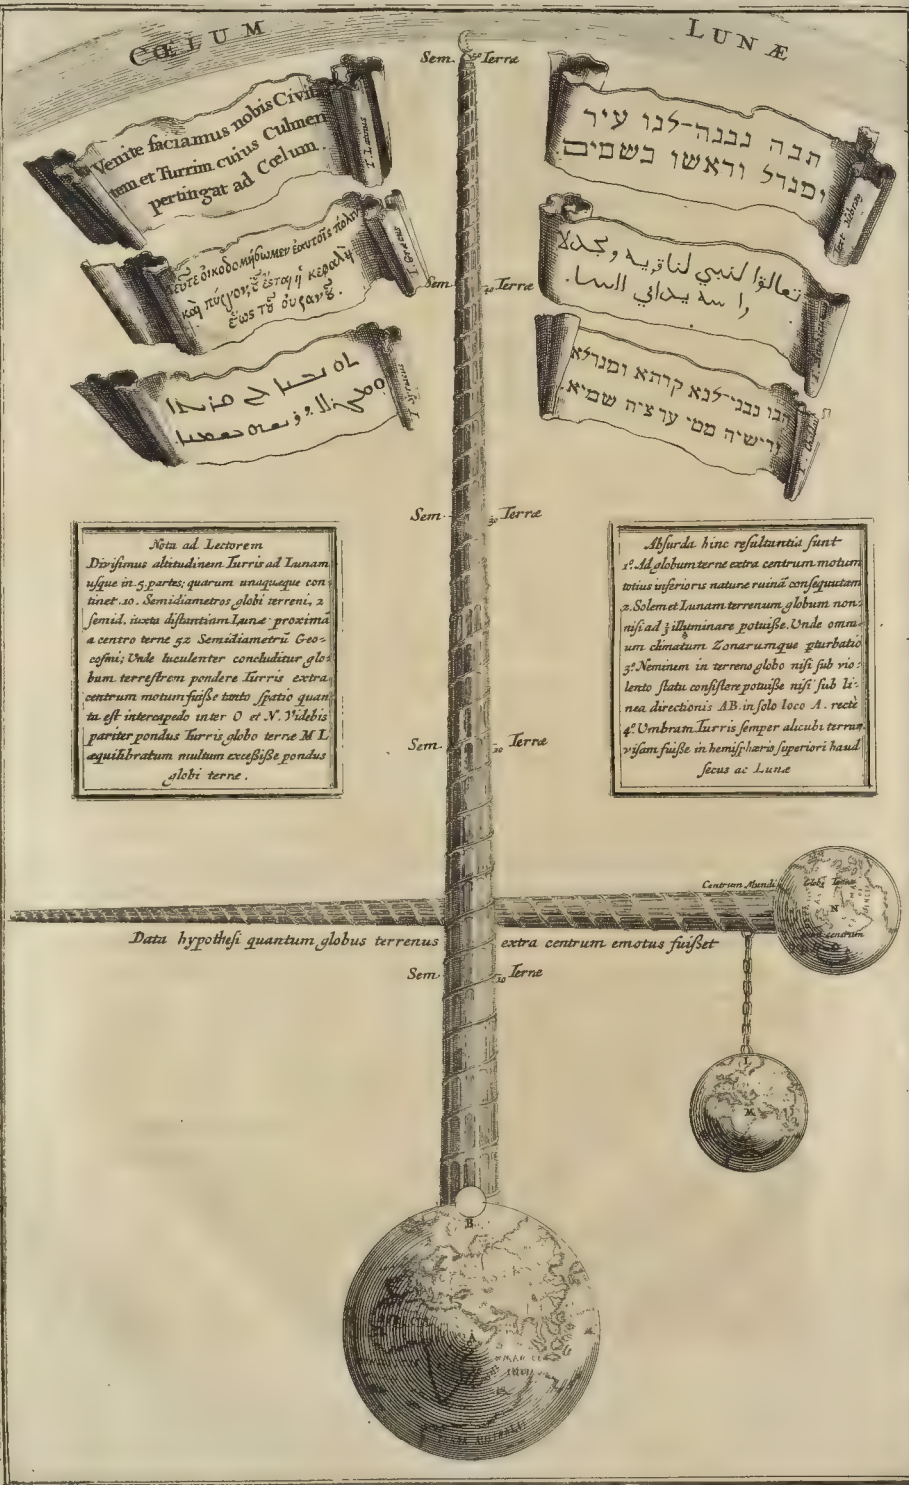 CŒLUM
LUNÆ
Sem. 50 Terræ
Venite faciamus nobis Civita
tem et Turrim cuius Culmen
pertingat ad Cœlum.
הבה נבנה-לנו עיר
ומגדל וראשו בשמים
Δεῦτε οἰκοδομήσωμεν ἑαυτοῖς πόλιν
καὶ πύργον, οὗ ἔσται ἡ κεφαλὴ
ἕως τοῦ οὐρανοῦ.
تعالوا لنبني لنا قريه ومجدلا
ܘܡܓܕܠܐ
הבו נבני-לנא קרתא ומגדלא
ורישיה ממי עד ציה שמיא.
Sem. 40 Terræ
Sem. 30 Terræ
Nota ad Lectorem
Divisimus altitudinem Turris ad Lunam
usque in 5 partes; quarum unaquæque con
tinet .10. Semidiametros globi terreni, 2
semid. iuxta distantiam Lunæ proximã
a centro terræ 52 Semidiametrũ Geo-
cosmi; Unde luculenter concluditur glo-
bum terrestrem pondere Turris extra
centrum motum fuiße tanto spatio quan
ta est intercapedo inter O et N. Videbis
pariter pondus Turris globo terræ M L
æquilibratum multum exceßiße pondus
globi terræ.
Absurda hinc resultantia sunt
1º. Ad globum terræ extra centrum motum
totius inferioris naturæ ruinã consequutam
2. Solem et Lunam terrenum globum non-
nisi ad illuminare potuiße. Unde omni-
um climatum Zonarumque pturbatio
3º. Neminem in terreno globo nisi sub vio-
lento statu consistere potuiße nisi sub li-
nea directionis AB. in solo loco A. rectè
4º. Umbram Turris semper alicubi terræ
visam fuiße in hemisphærio superiori haud
secus ac Lunæ
Sem. 20 Terræ
Centrum Mundi
N
Data hypothesi quantum globus terrenus extra centrum emotus fuißet
Sem. 10 Terræ
L
M
B
A